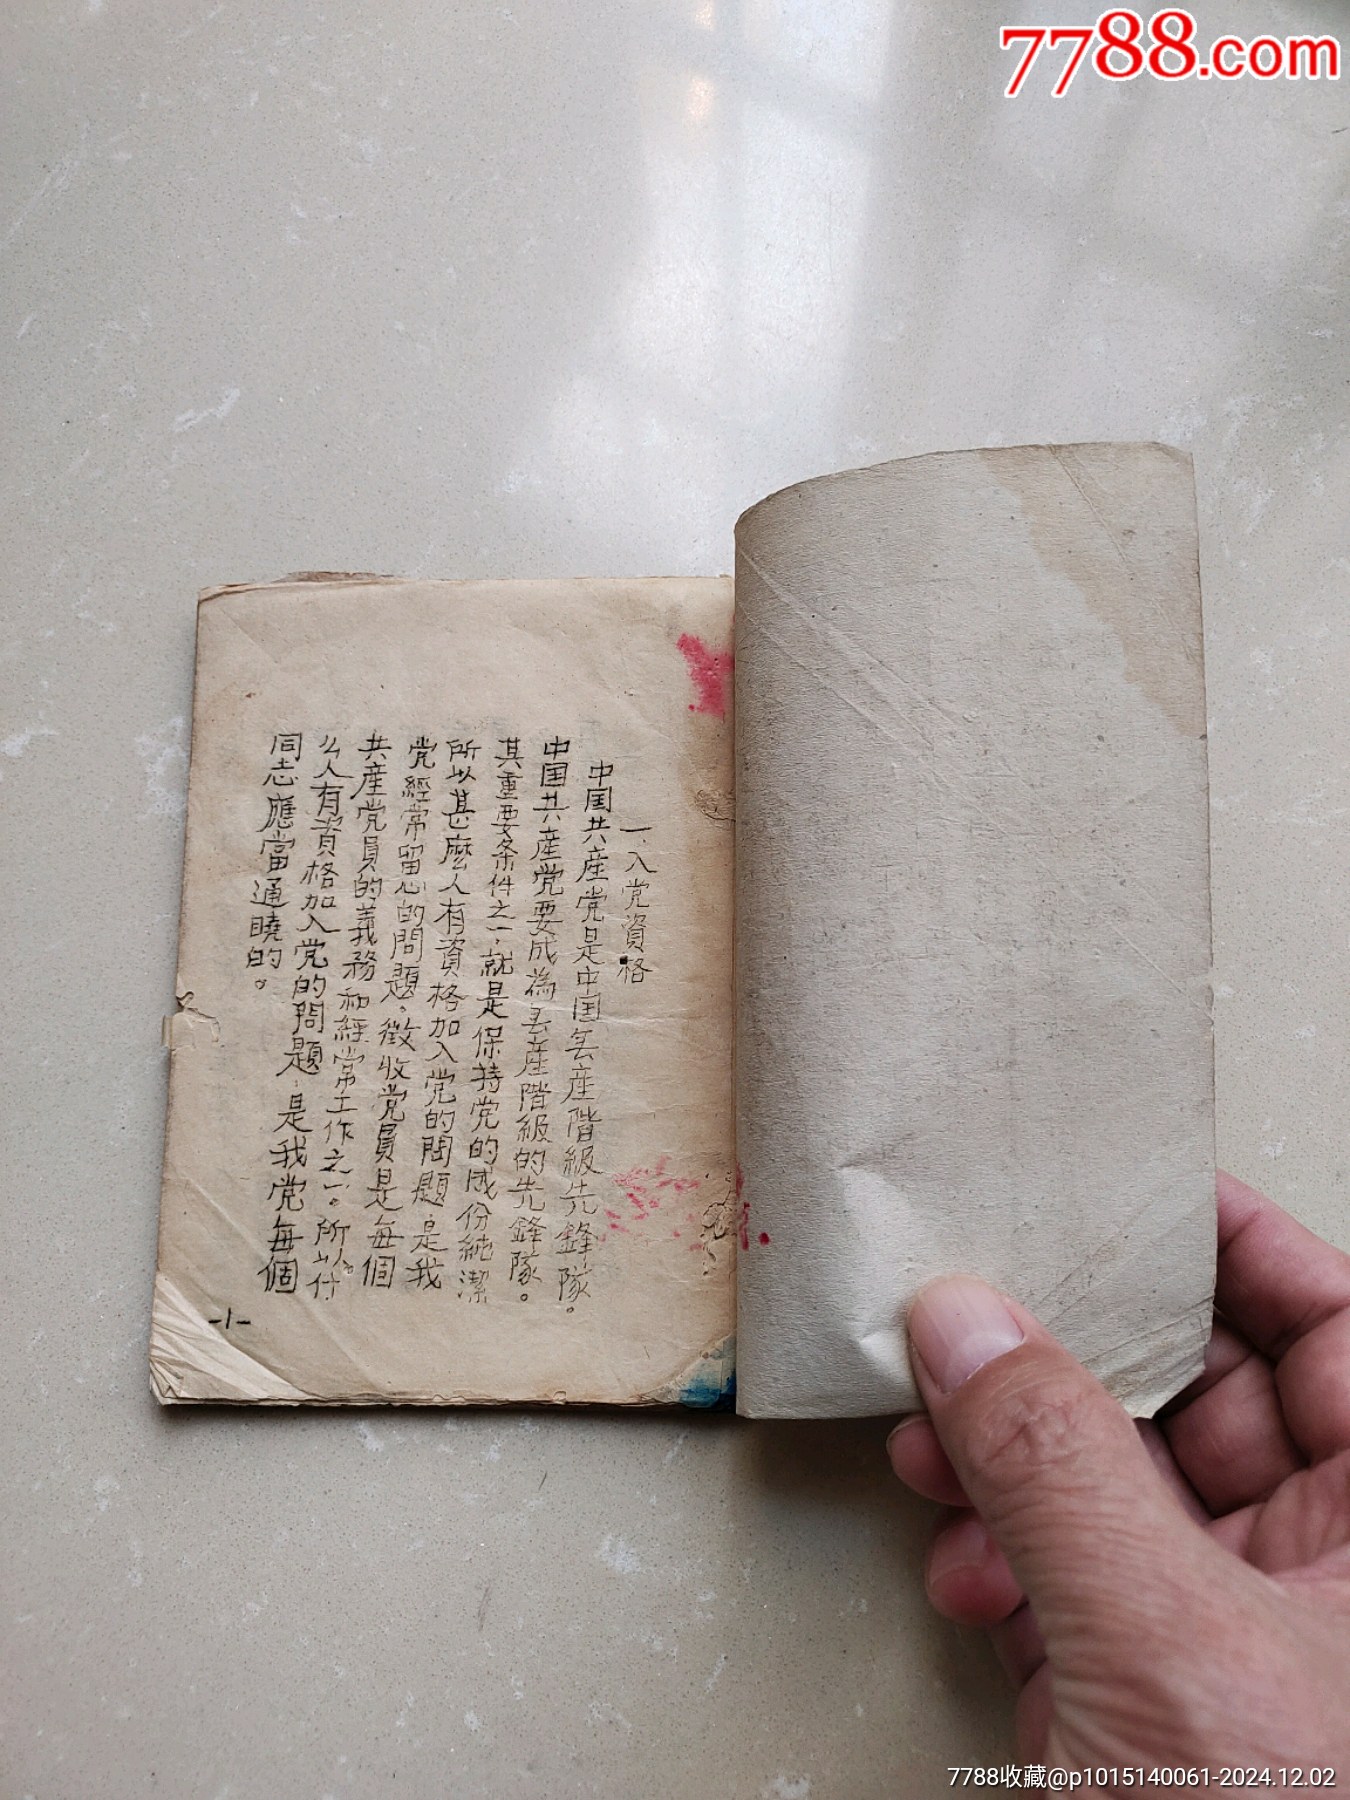 7788.com
一、入党資格
中国共產党是中国无產階級先鋒隊。
中国共產党要成為无產階級的先鋒隊。
其重要条件之一,就是保持党的成份純潔
所以甚麽人有資格加入党的問題,是我
党經常留心的問題。徵收党員是每個
共產党員的義務和經常工作之一。所以什
么人有資格加入党的問題,是我党每個
同志應當通曉的。
-1-
7788收藏@p1015140061-2024.12.02